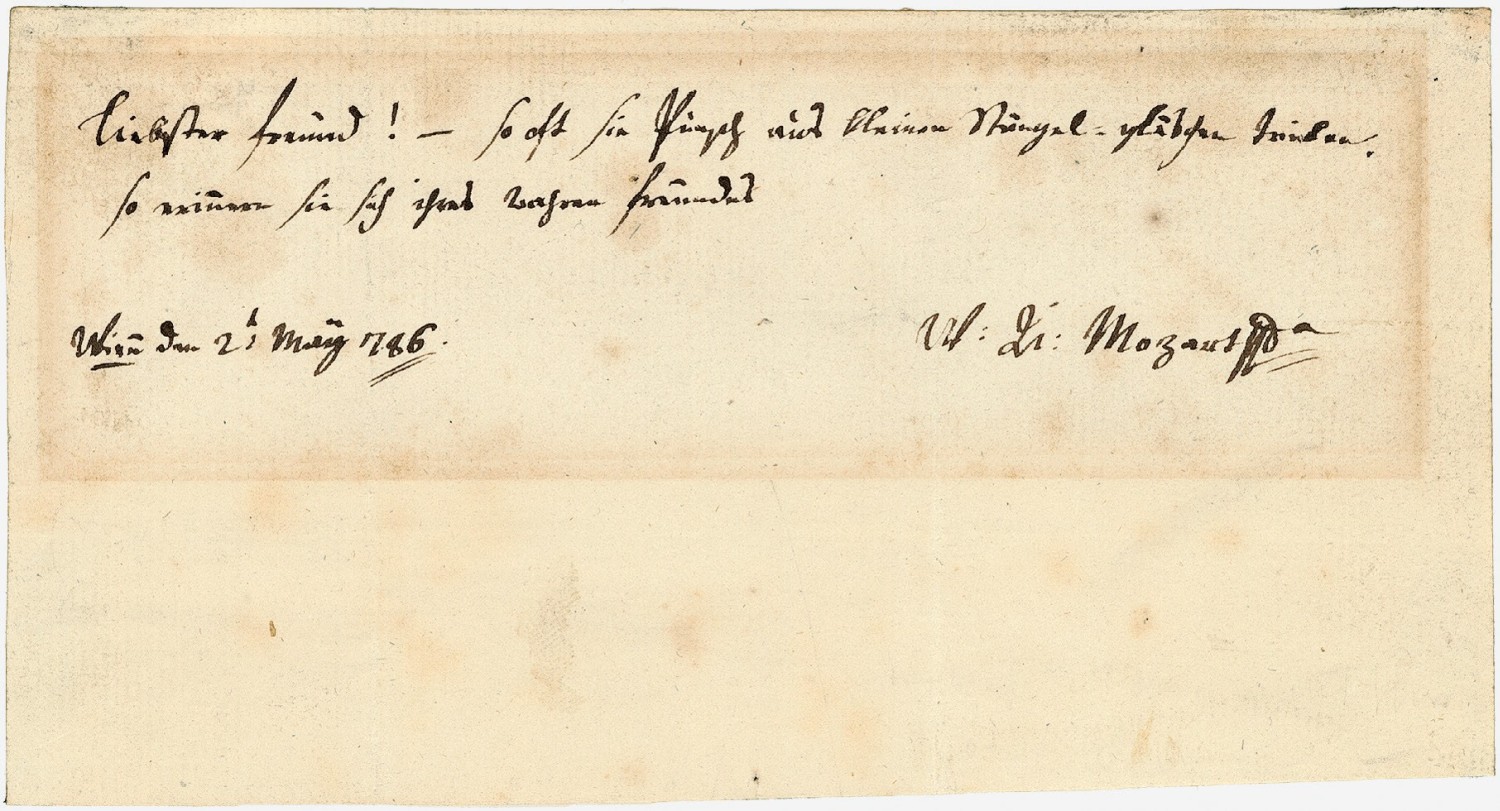 liebster freund! — so oft sie Punsch aus kleinen Stängel-gläschen trinken,
so erinnern sie sich ihres wahren freundes
Wien den 2t May 786. W: A: Mozart